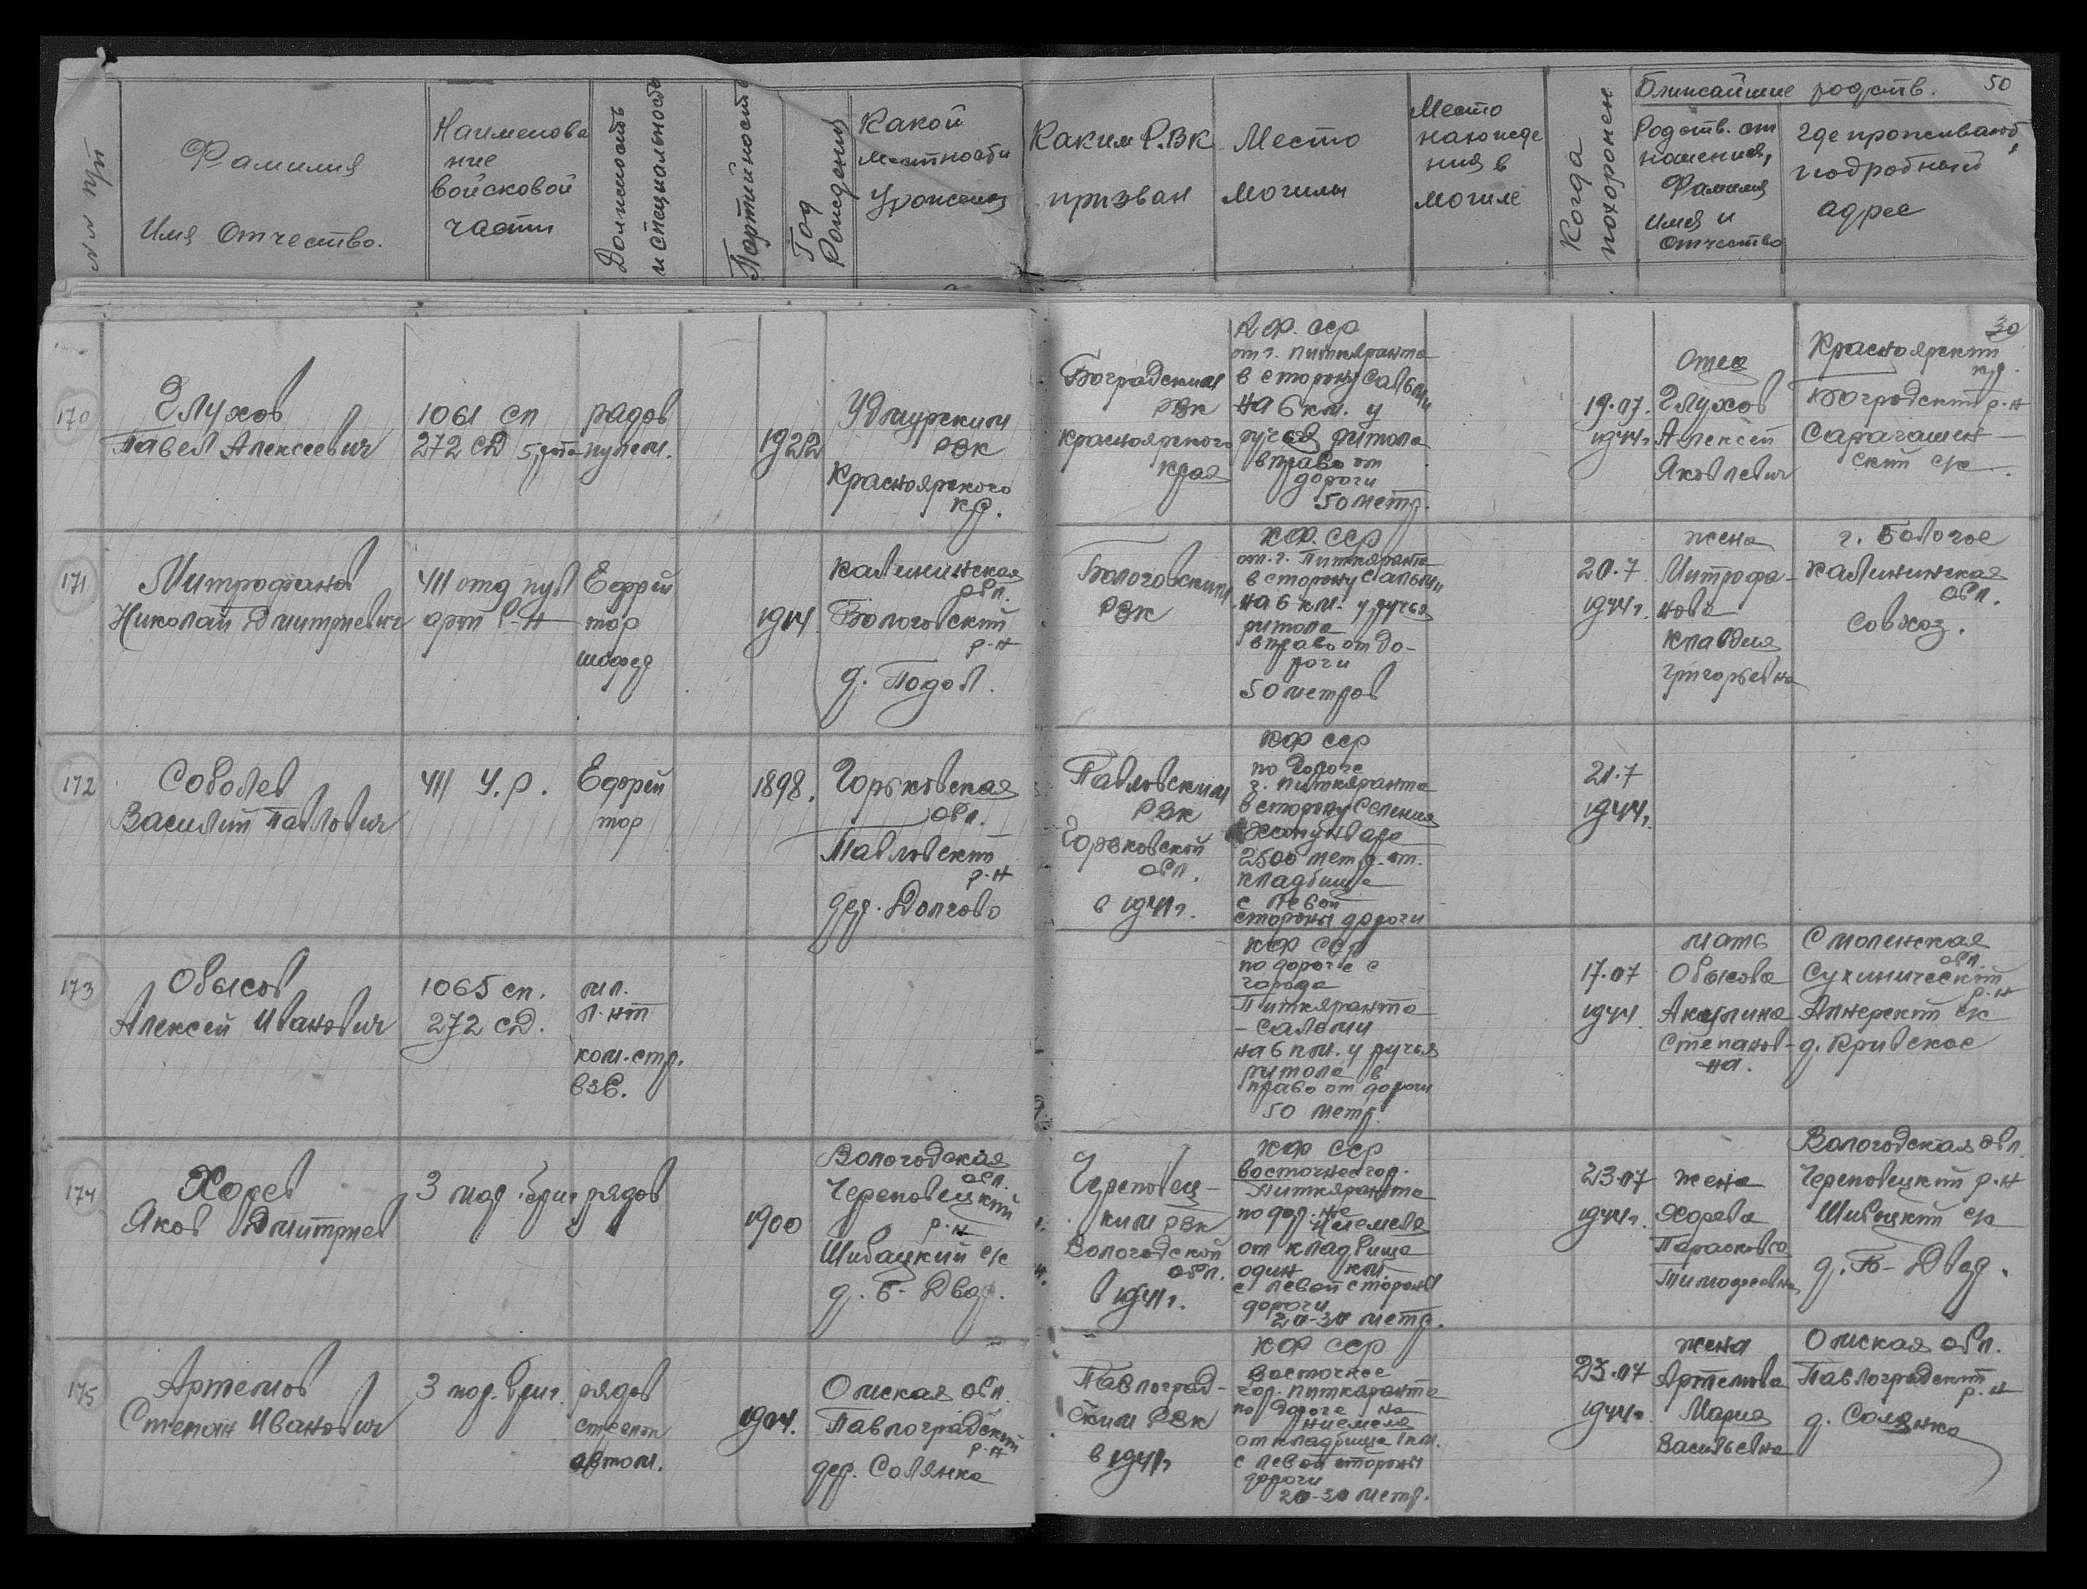 50
№№ п/п
Фамилия
Имя Отчество.
Наименова
ние
войсковой
части
Должность
и специальность
Партийность
Год
Рождения
Какой
местности
Уроженец
Каким Р.ВК
призван
Место
могилы
Место
нахожде
ния в
могиле
Когда
похоронен
Ближайшие родств.
Родств. от
ношения,
Фамилия
имя и
отчество
Где проживают,
подробный
адрес
30
170
Глухов
Павел Алексеевич
1061 сп
272 сд 5 рота
рядов
пулем.
1922
Удмурским
РВК
Красноярского
кр.
Боградским
РВК
Красноярского
края
К.Ф. сср
от г. Питкяранта
в сторону Сальми
на 6 км. у
ручья ритола
вправо от
дороги
50 метр.
19.07.
1944г
Отец
Глухов
Алексей
Яковлевич
Красноярский
кр.
Боградский р-н
Сарагашен-
ский с/с
171
Митрофанов
Николай Дмитриевич
411 отд пул
арт б-н
Ефрей
тор
шофер
1914.
Калининская
обл.
Бологовский
р-н
д. Подол.
Бологовским
РВК
КФ. сср
от г. Питкяранта
в сторону Сальми
на 6 км. у ручья
ритола
вправо от до-
роги
50 метров
20.7
1944г.
жена
Митрофа-
нова
Клавдия
Григорьевна
г. Бологое
Калининская
обл.
совхоз.
172
Соболев
Василий Павлович
411 У.Р.
Ефрей
тор
1898.
Горьковская
обл.
Павловский
р-н
дер. Долгово
Павловским
РВК
Горьковской
обл.
в 1941г.
КФ сср
по дороге
г. Питкяранта
в сторону селения
2500 метр. от.
кладбище
с левой
стороны дороги
21.7
1944г.
173
Обысов
Алексей Иванович
1065 сп.
272 сд.
мл.
л-нт
ком. стр.
взв.
КФ сср
по дороге с
города
Питкяранта
- Салами
на 6 км. у ручья
ритола в
право от дороги
50 метр.
17.07
1944
мать
Обысова
Акулина
Степанов-
на.
Смоленская
обл.
Сухинический
р-н
с/с
д. Кривское
174
Хорев
Яков Дмитриев
3 мор. бриг
рядов
1900
Вологодская
обл.
Череповецкий
р-н
Шивацкий с/с
д. Б- Двор.
Череповец-
ким РВК
Вологодской
обл.
в 1941г.
КФ сср
восточнее гор.
Питкяранта
по дор. на
Ниемеля
от кладбища
один км.
с левой стороны
дороги
20-30 метр.
23.07
1944г.
жена
Хорева
Парасковья
Тимофеевна
Вологодская обл.
Череповецкий р-н
Шивоцкий с/с
д. Б- Двор.
175
Артемов
Степан Иванович
3 мор. бриг.
рядов
стрелок
автом.
1904.
Омская обл.
Павлоградский
р-н
дер. Солянка
Павлоград-
ским РВК
в 1941г
КФ сср
восточнее
гор. Питкяранта
по дороге на
Ниемеля
от кладбища 1 км.
с левой стороны
дороги
20-30 метр.
23.07
1944г.
жена
Артемова
Мария
Васильевна
Омская обл.
Павлоградский
р-н
д. Солянка